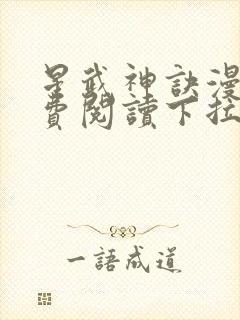 星武神訣漫
費閱讀下拉
一語成道